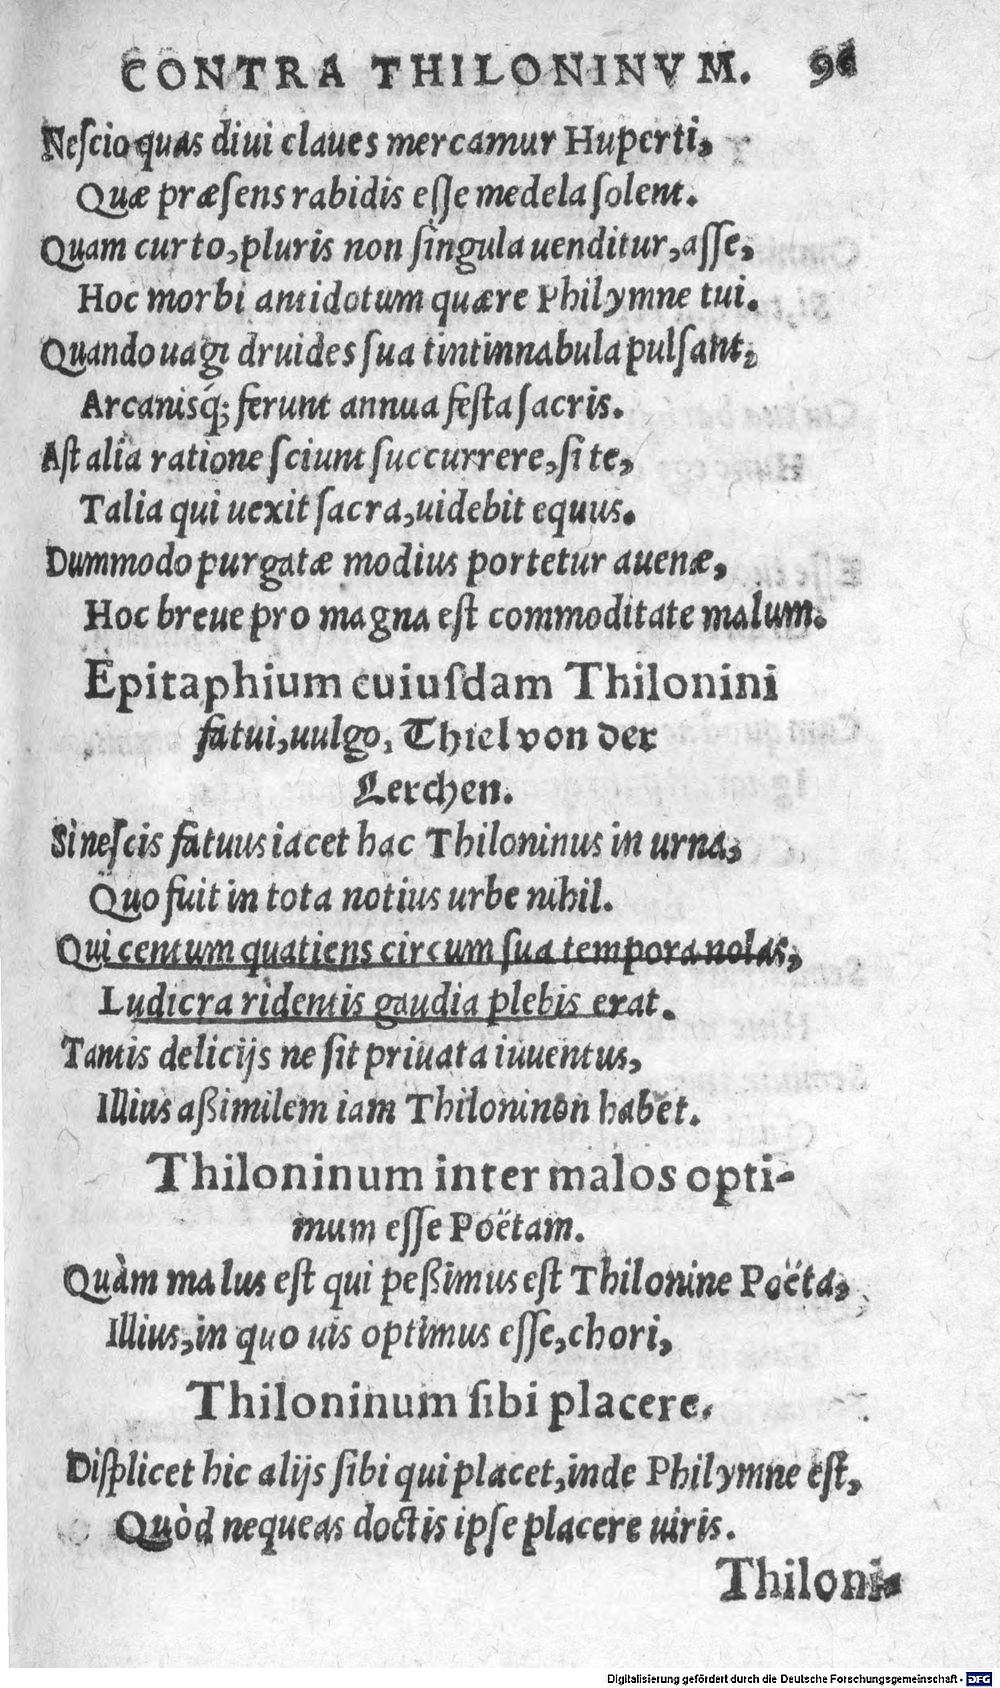 CONTRA THILONINVM. 96
Neſcio quas diui claues mercamur Huperti,
Quæ præſens rabidis eſſe medela ſolent.
Quam curto, pluris non ſingula uenditur, aſſe,
Hoc morbi antidotum quære Philymne tui.
Quando uagi druides ſua tintinnabula pulſant,
Arcanisq́; ferunt annua feſta ſacris.
Aſt alia ratione ſciunt ſuccurrere, ſi te,
Talia qui uexit ſacra, uidebit equus.
Dummodo purgatæ modius portetur auenæ,
Hoc breue pro magna eſt commoditate malum.
Epitaphium cuiuſdam Thilonini
fatui, uulgo, Thiel von der
Lerchen.
Si neſcis fatuus iacet hac Thiloninus in urna,
Quo fuit in tota notius urbe nihil.
Qui centum quatiens circum ſua tempora nolas,
Ludicra ridentis gaudia plebis erat.
Tantis delicijs ne ſit priuata iuuentus,
Illius aßimilem iam Thiloninon habet.
Thiloninum inter malos opti-
mum eſſe Poëtam.
Quàm malus eſt qui peßimus eſt Thilonine Poëta,
Illius, in quo uis optimus eſſe, chori,
Thiloninum ſibi placere.
Diſplicet hic alijs ſibi qui placet, inde Philymne eſt,
Quòd nequeas doctis ipſe placere uiris.
Thiloni-
Digitalisierung gefördert durch die Deutsche Forschungsgemeinschaft - DFG